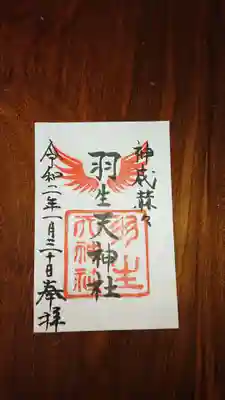 神威蘇々
羽生天神社
令和二年一月三十日奉拝
羽生
天神社